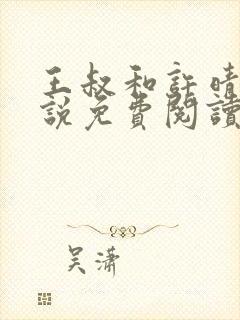 王叔和許晴
說免費閱讀
吴潇